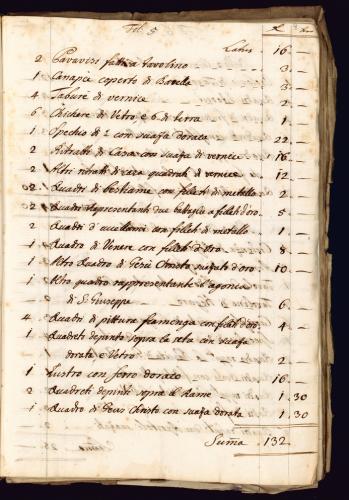 Fol. 5
Latus 16 —
2 Paraviti fatti a Tavolino 3 —
1 Canapè coperto di 3 —
4 Taburè di vernice 2 —
6 Chichere di Vetro, e 6 di terra 1
1 Specchio di 2 con suaza dorata 22 —
2 Ritratti di Casa con suaza di vernice 16
2 Altri ritrati di cera quadrati di vernice 12
02 Quadri di bestiame con fileti di metallo 2 —
2 Quadri representanti due bataglie a fileti d'oro 5 —
2 Quadri d'uccellami con fileti di metallo 1
1 Quadro di Venere con fileti d'oro 8 —
1 Altro Quadro di Gesù Christo suazato d'oro 10 —
1 Altro quadro rappresentante l'agonia
di S. Giuseppe 6 —
4 Quadri di pittura fiamenga con fileti d'oro 4 —
1 Quadreto depinto sopra la seta con suaza
dorata e Vetro 2 —
1 Lustro con ferro dorato 16 —
2 Quadreti depinti sopra il Rame 1 30
1 Quadro di Gesus Christi con suaza dorata 1 30
Suma 132